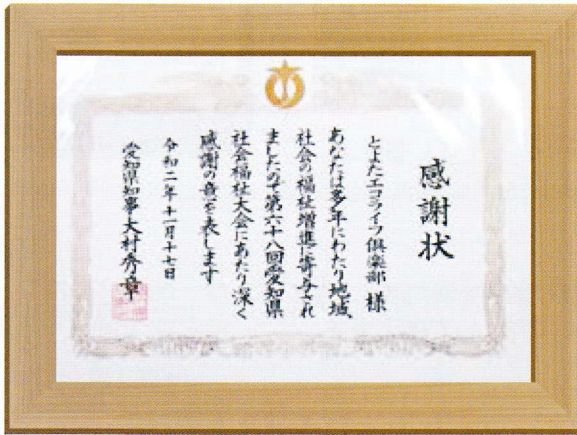 感謝状
とよたエコライフ倶楽部 様
あなたは多年にわたり地域
社会の福祉増進に寄与され
ましたので第六十八回愛知県
社会福祉大会にあたり深く
感謝の意を表します
令和二年十一月十七日
愛知県知事大村秀章